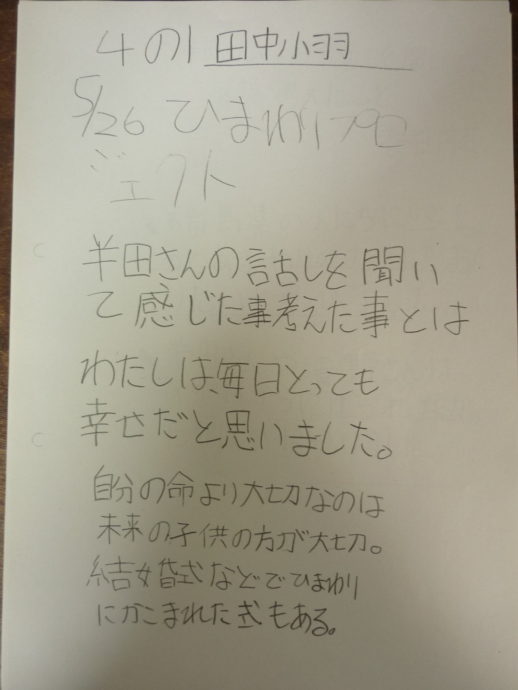 4の1 田中小羽
5/26 ひまわりプロ
ジェクト
半田さんの話しを聞い
て感じた事考えた事とは
わたしは、毎日とっても
幸せだと思いました。
自分の命より大切なのは
未来の子供の方が大切。
結婚式などでひまわり
にかこまれた式もある。